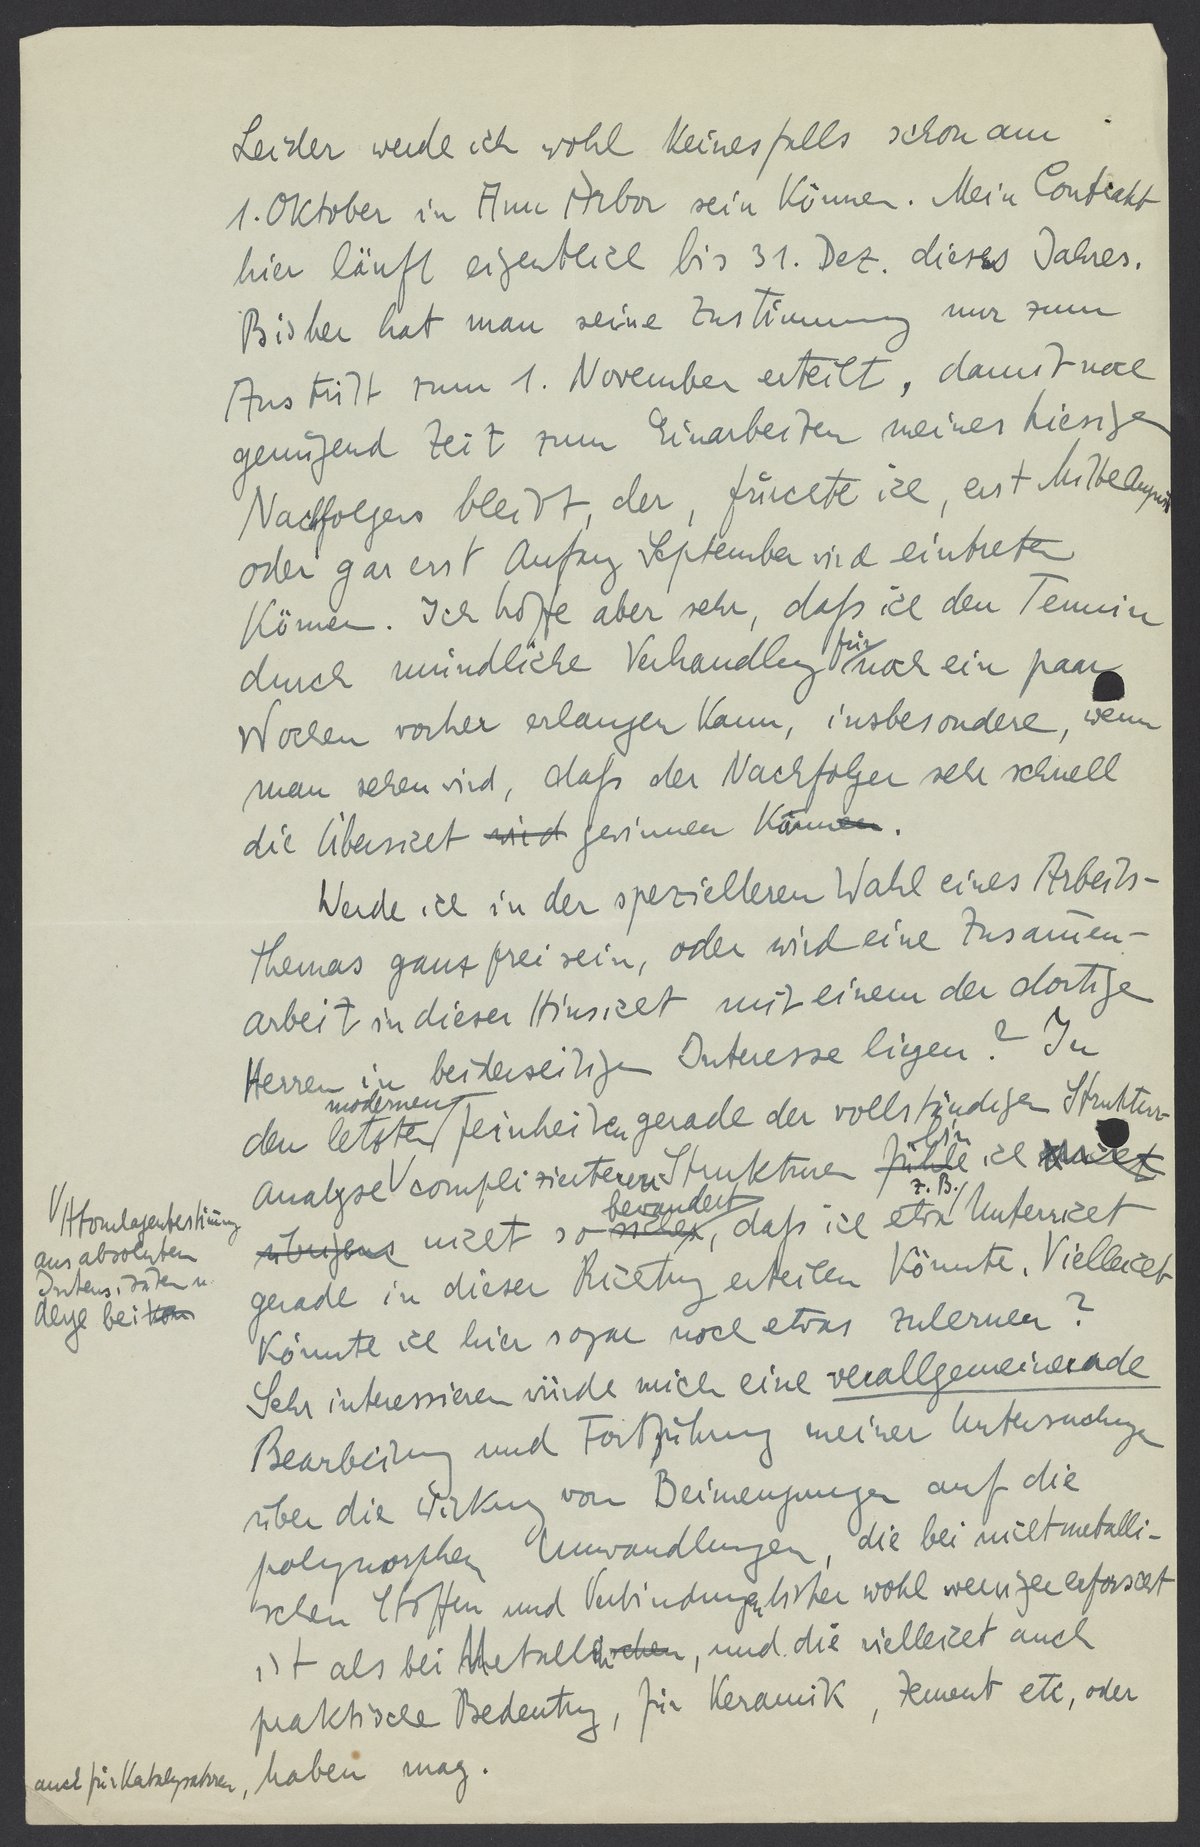 Leider werde ich wohl keinesfalls schon am
1. Oktober in Ann Arbor sein können. Mein Contrakt
hier läuft eigentlich bis 31. Dez. dieses Jahres.
Bisher hat man seine Zustimmung nur zum
Austritt zum 1. November erteilt, damit noch
genügend Zeit zum Einarbeiten meines hiesigen
Nachfolgers bleibt, der, fürchte ich, erst Mitte August
oder gar erst Anfang September wird eintreten
können. Ich hoffe aber sehr, daß ich den Termin
durch mündliche Verhandlung für noch ein paar
Wochen vorher erlangen kann, insbesondere, wenn
man sehen wird, daß der Nachfolger sehr schnell
die Übersicht wird gewinnen können.
Werde ich in der spezielleren Wahl eines Arbeits-
themas ganz frei sein, oder wird eine Zusammen-
arbeit in dieser Hinsicht mit einem der dortigen
Herren in beiderseitigen Interesse liegen? In
modernen
den letzten Feinheiten gerade der vollständigen Struktur-
bin
analyse complizierteren Strukturen fühle ich mich
bewandert z. B.
übrigens nicht so sicher, daß ich etwa Unterricht
gerade in dieser Richtung erteilen könnte. Vielleicht
könnte ich hier sogar noch etwas zulernen?
Sehr interessieren würde mich eine verallgemeinernde
Bearbeitung und Fortführung meiner Untersuchungen
über die Wirkung von Beimengungen auf die
polymorphen Umwandlungen, die bei nichtmetalli-
schen Stoffen und Verbindungen bisher wohl weniger erforscht
ist als bei Metallischen, und die vielleicht auch
praktische Bedeutung, für Keramik, Zement etc, oder
haben mag.
Atomlagenbestimmung
aus absoluten
Intensitäten u.
bei
auch für Katalysatoren,